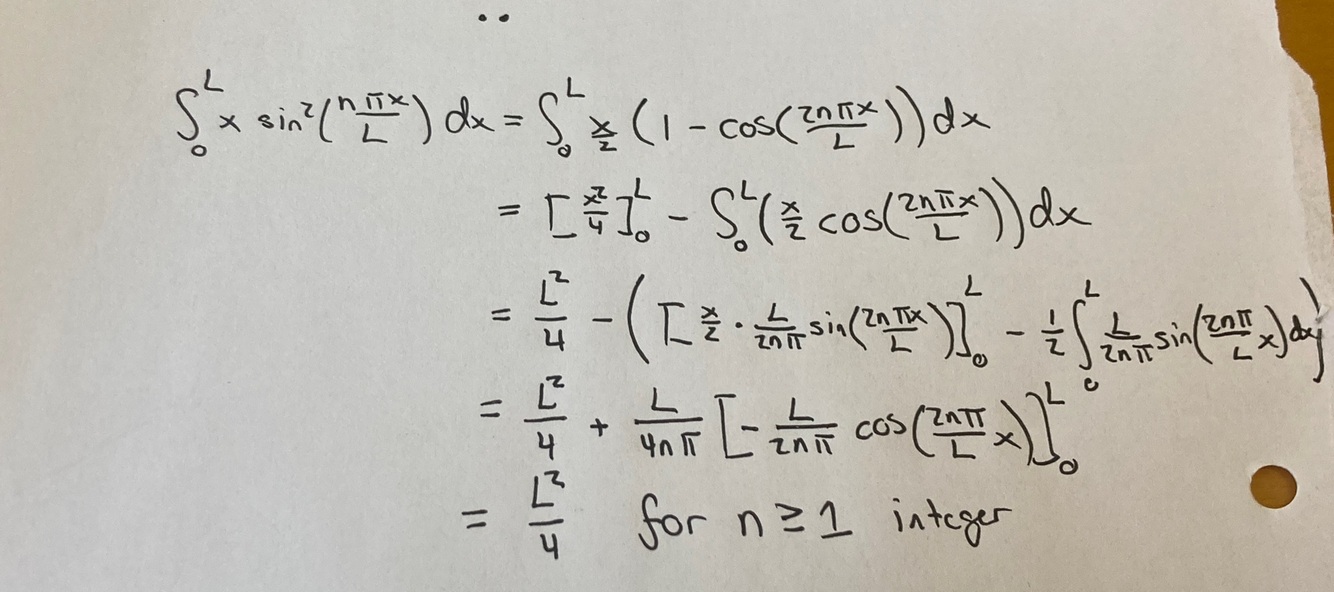 ∫₀ᴸ x sin²(nπx/L) dx = ∫₀ᴸ x/2 (1 - cos(2nπx/L)) dx
= [x²/4]₀ᴸ - ∫₀ᴸ (x/2 cos(2nπx/L)) dx
= L²/4 - ([x/2 · L/2nπ sin(2nπx/L)]₀ᴸ - 1/2 ∫₀ᴸ L/2nπ sin(2nπ/L x) dx)
= L²/4 + L/4nπ [- L/2nπ cos(2nπ/L x)]₀ᴸ
= L²/4 for n ≥ 1 integer